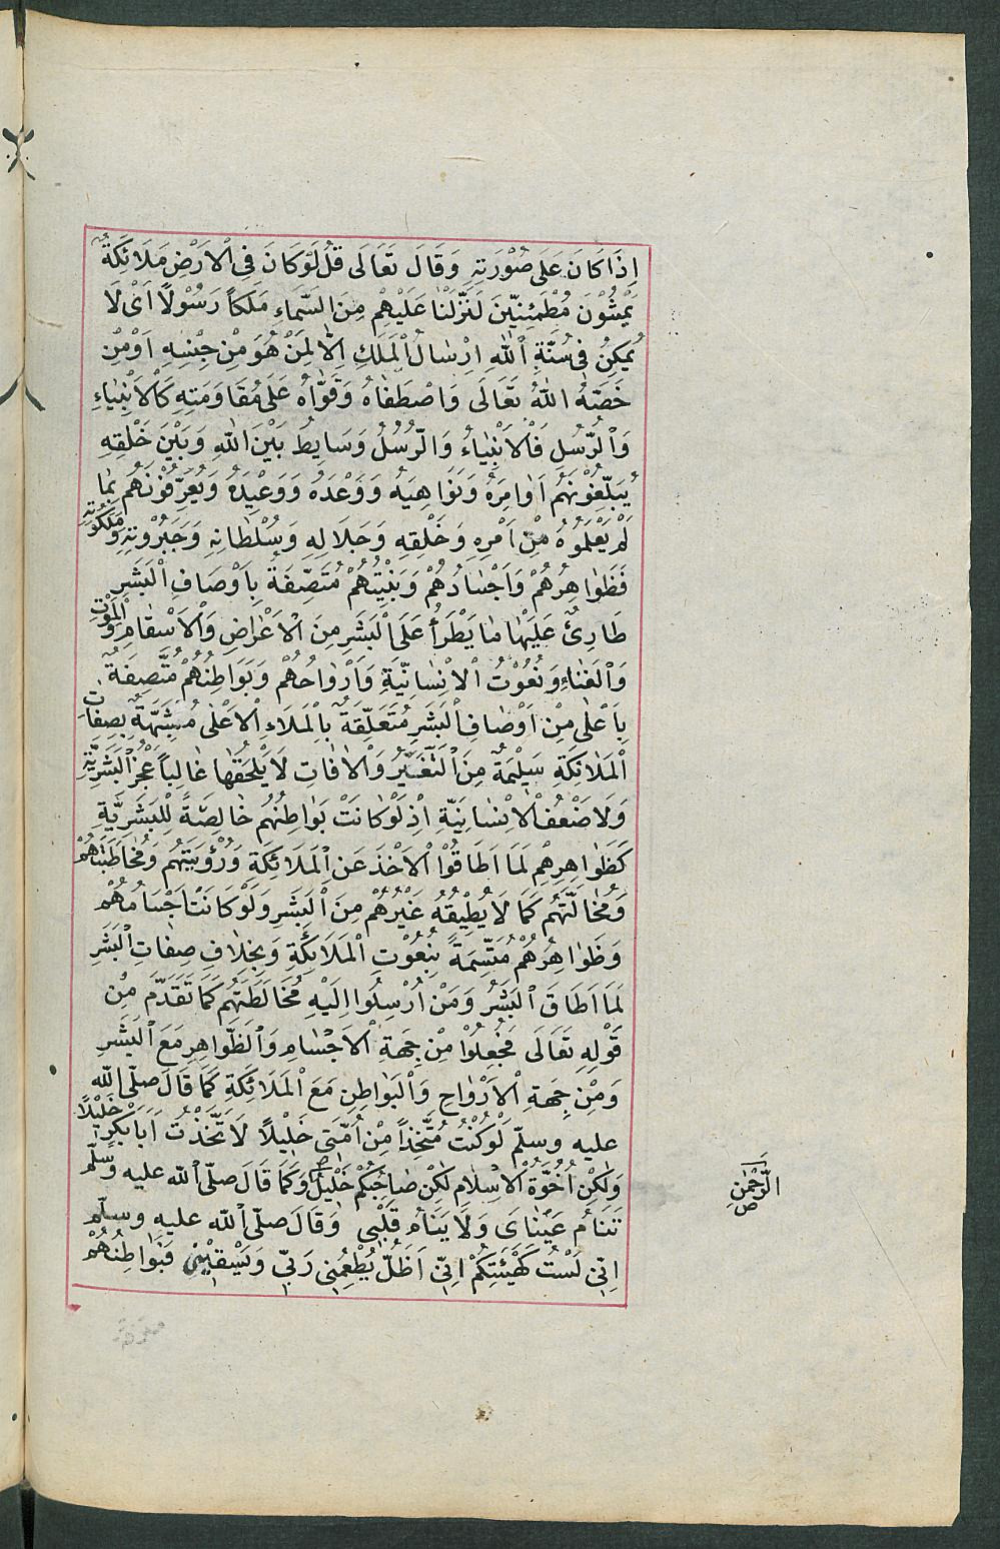 اِذَا كَانَ عَلَى صُوْرَتِهِ وَقَالَ تَعَالَى قُلْ لَوْ كَانَ فِى الْاَرْضِ مَلَائِكَةٌ
يَمْشُوْنَ مُطْمَئِنِّيْنَ لَنَزَّلْنَا عَلَيْهِمْ مِنَ السَّمَاءِ مَلَكاً رَسُوْلًا اَىْ لَا
يُمْكِنُ فِى سُنَّةِ اللّٰهِ اِرْسَالُ الْمَلَكِ اِلَّا لِمَنْ هُوَ مِنْ جِنْسِهِ اَوْ مِنْ
خَصَّهُ اللّٰهُ تَعَالَى وَاصْطَفَاهُ وَقَوَّاهُ عَلَى مُقَاوَمَتِهِ كَالْاَنْبِيَاءِ
وَالرُّسُلِ فَالْاَنْبِيَاءُ وَالرُّسُلُ وَسَايِطُ بَيْنَ اللّٰهِ وَبَيْنَ خَلْقِهِ
يُبَلِّغُوْنَهُمْ اَوَامِرَهُ وَنَوَاهِيَهُ وَوَعْدَهُ وَوَعِيْدَهُ وَيُعَرِّفُوْنَهُمْ بِمَا
لَمْ يَعْلَمُوهُ مِنْ اَمْرِهِ وَخَلْقِهِ وَجَلَالِهِ وَسُلْطَانِهِ وَجَبَرُوْتِهِ وَمَلَكُوْتِهِ
فَظَوَاهِرُهُمْ وَاَجْسَادُهُمْ وَبَنْيَتُهُمْ مُتَّصِفَةٌ بِاَوْصَافِ الْبَشَرِ
طَارِئٌ عَلَيْهَا مَا يَطْرَأُ عَلَى الْبَشَرِ مِنَ الْاَعْرَاضِ وَالْاَسْقَامِ وَالْمَوْتِ
وَالْفَنَاءِ وَنُعُوْتُ الْاِنْسَانِيَّةِ وَاَرْوَاحُهُمْ وَبَوَاطِنُهُمْ مُتَّصِفَةٌ
بِاَعْلَى مِنْ اَوْصَافِ الْبَشَرِ مُتَعَلِّقَةٌ بِالْمَلَاءِ الْاَعْلَى مُتَشَبِّهَةٌ بِصِفَاتِ
الْمَلَائِكَةِ سَلِيْمَةٌ مِنَ التَّغَيُّرِ وَالْاٰفَاتِ لَا يَلْحَقُهَا غَالِباً عَجْزُ الْبَشَرِيَّةِ
وَلَا ضَعْفُ الْاِنْسَانِيَّةِ اِذْ لَوْ كَانَتْ بَوَاطِنُهُمْ خَالِصَةً لِلْبَشَرِيَّةِ
كَظَوَاهِرِهِمْ لَمَا اَطَاقُوْا الْاَخْذَ عَنِ الْمَلَائِكَةِ وَرُؤْيَتَهُمْ وَمُخَاطَبَتَهُمْ
وَمُخَالَّتَهُمْ كَمَا لَا يُطِيْقُهُ غَيْرُهُمْ مِنَ الْبَشَرِ وَلَوْ كَانَتْ اَجْسَامُهُمْ
وَظَوَاهِرُهُمْ مُتَّسِمَةً بِنُعُوْتِ الْمَلَائِكَةِ وَبِخِلَافِ صِفَاتِ الْبَشَرِ
لَمَا اَطَاقَ الْبَشَرُ وَمَنْ اُرْسِلُوا اِلَيْهِ مُخَالَطَتَهُمْ كَمَا تَقَدَّمَ مِنْ
قَوْلِهِ تَعَالَى فَجُعِلُوْا مِنْ جِهَةِ الْاَجْسَامِ وَالظَّوَاهِرِ مَعَ الْبَشَرِ
وَمِنْ جِهَةِ الْاَرْوَاحِ وَالْبَوَاطِنِ مَعَ الْمَلَائِكَةِ كَمَا قَالَ صلّى اللّٰه
عليه وسلّم لَوْ كُنْتُ مُتَّخِذاً مِنْ اُمَّتِى خَلِيْلًا لَاتَّخَذْتُ اَبَا بَكْرٍ خَلِيْلًا
وَلٰكِنْ اُخُوَّةُ الْاِسْلَامِ لٰكِنْ صَاحِبُكُمْ خَلِيْلُ وَكَمَا قَالَ صلّى اللّٰه عليه وسلّم
الرَّحْمٰنِ صح
تَنَامُ عَيْنَاىَ وَلَا يَنَامُ قَلْبِى وَقَالَ صلّى اللّٰه عليه وسلّم
اِنِّى لَسْتُ كَهَيْئَتِكُمْ اِنِّى اَظَلُّ يُطْعِمُنِى رَبِّى وَيَسْقِيْنِى فَبَوَاطِنُهُمْ